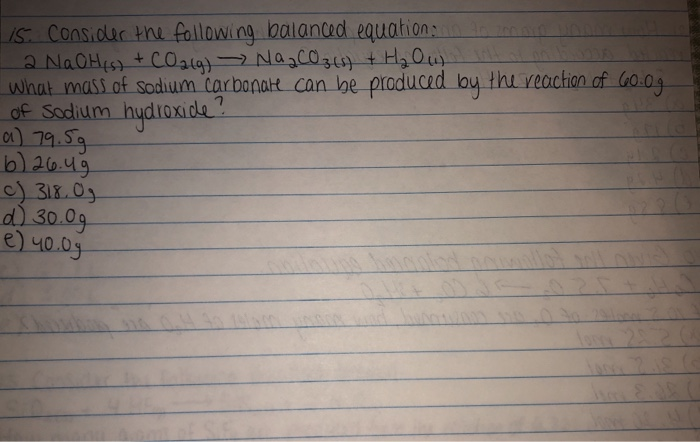 15. Consider the following balanced equation:
2 NaOH(s) + CO₂(g) → Na₂CO₃(s) + H₂O(l)
What mass of sodium carbonate can be produced by the reaction of 60.0g
of sodium hydroxide?
a) 79.5g
b) 26.4g
c) 318.0g
d) 30.0g
e) 40.0g